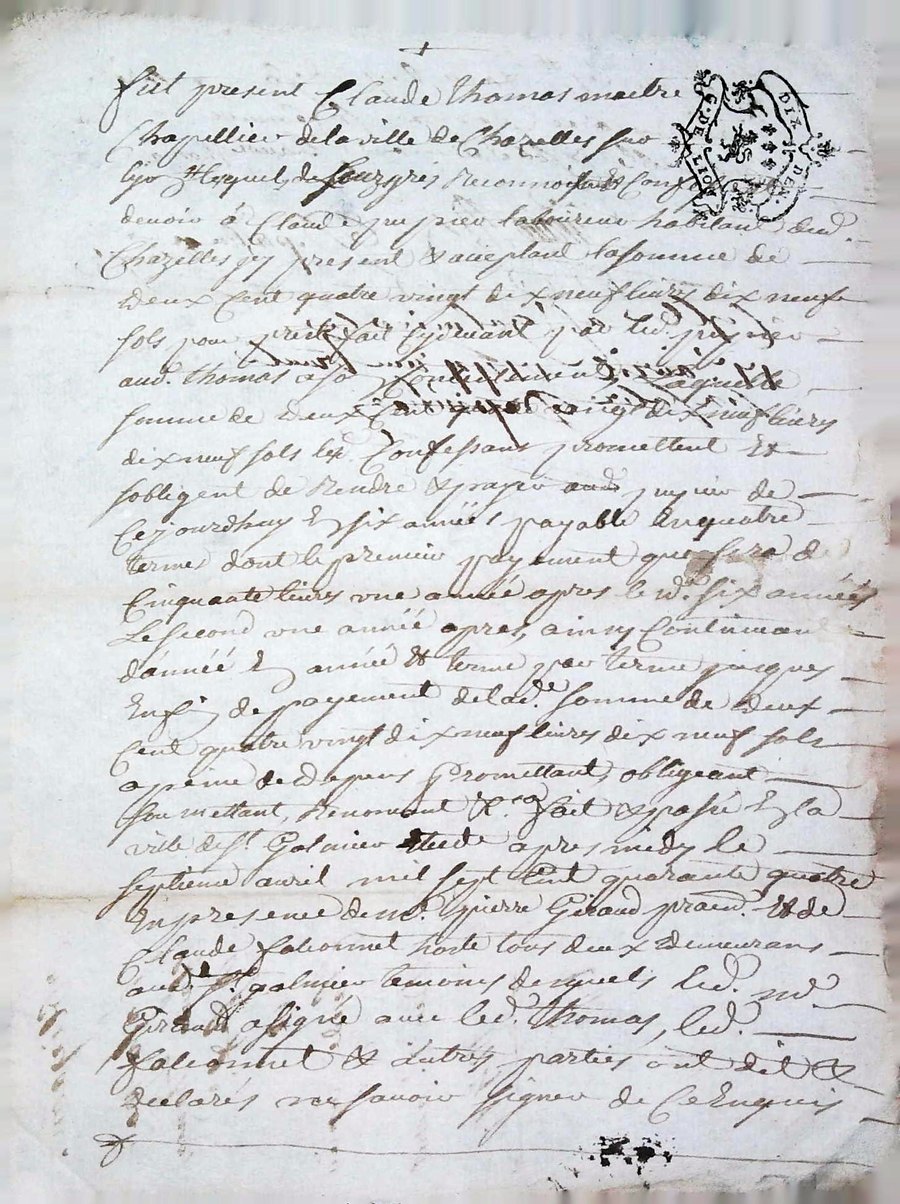 Fut present Claude Thomas maitre
Chapellier de la ville de Chazelles sur
lyon lequel de gré a reconnu & Confessé
devoir à Claude laboureur habitant dud.
Chazelles icy present & acceptant la somme de
deux Cent quatre vingt dix neuf livres dix neuf
sols pour prest fait cydevant par led.
aud. Thomas laquelle
somme de deux Cent quatre vingt dix neuf livres
dix neuf sols led. Confessant promettent Et
sobligent de Rendre & payer aud. de
Cejourdhuy En six années payable En quatre
terme dont le premier payement que sera de
Cinquante livres une année apres le d. six années
Le second une année apres, ainsy Continuant
dannéé En année & terme par terme jusques
Enfin de payement delad.e somme de deux
Cent quatre vingt dix neuf livres dix neuf sols
a peine de depens Promettant, obligeant
Soumettant, Renoncant &.ca fait & passé En la
ville de St. Galmier Etude apres midy le
septieme avril mil sept Cent quarante quatre
En presence de me. pierre Giraud praen. Et de
Claude falconnet hoste tous deux demeurans
aud. St. galmier temoins desquels led. me.
Giraud a signé avec led. Thomas, led.
falconnet & autres parties ont dit &
declarés ne savoir signer de Ce Enquis
G. DE
DIX DEN.